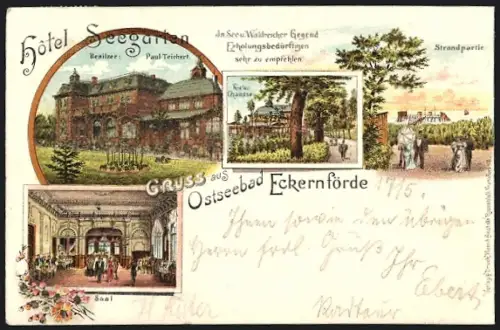 Hôtel Seegarten
Besitzer: Paul Teichert.
In See u. Waldreicher Gegend
Erholungsbedürftigen
sehr zu empfehlen.
Strandpartie
Gruss aus
Ostseebad Eckernförde
17/5.
Ihnen sowie den übrigen
Herren frdl. Gruß Ihr
Ebert
Saal